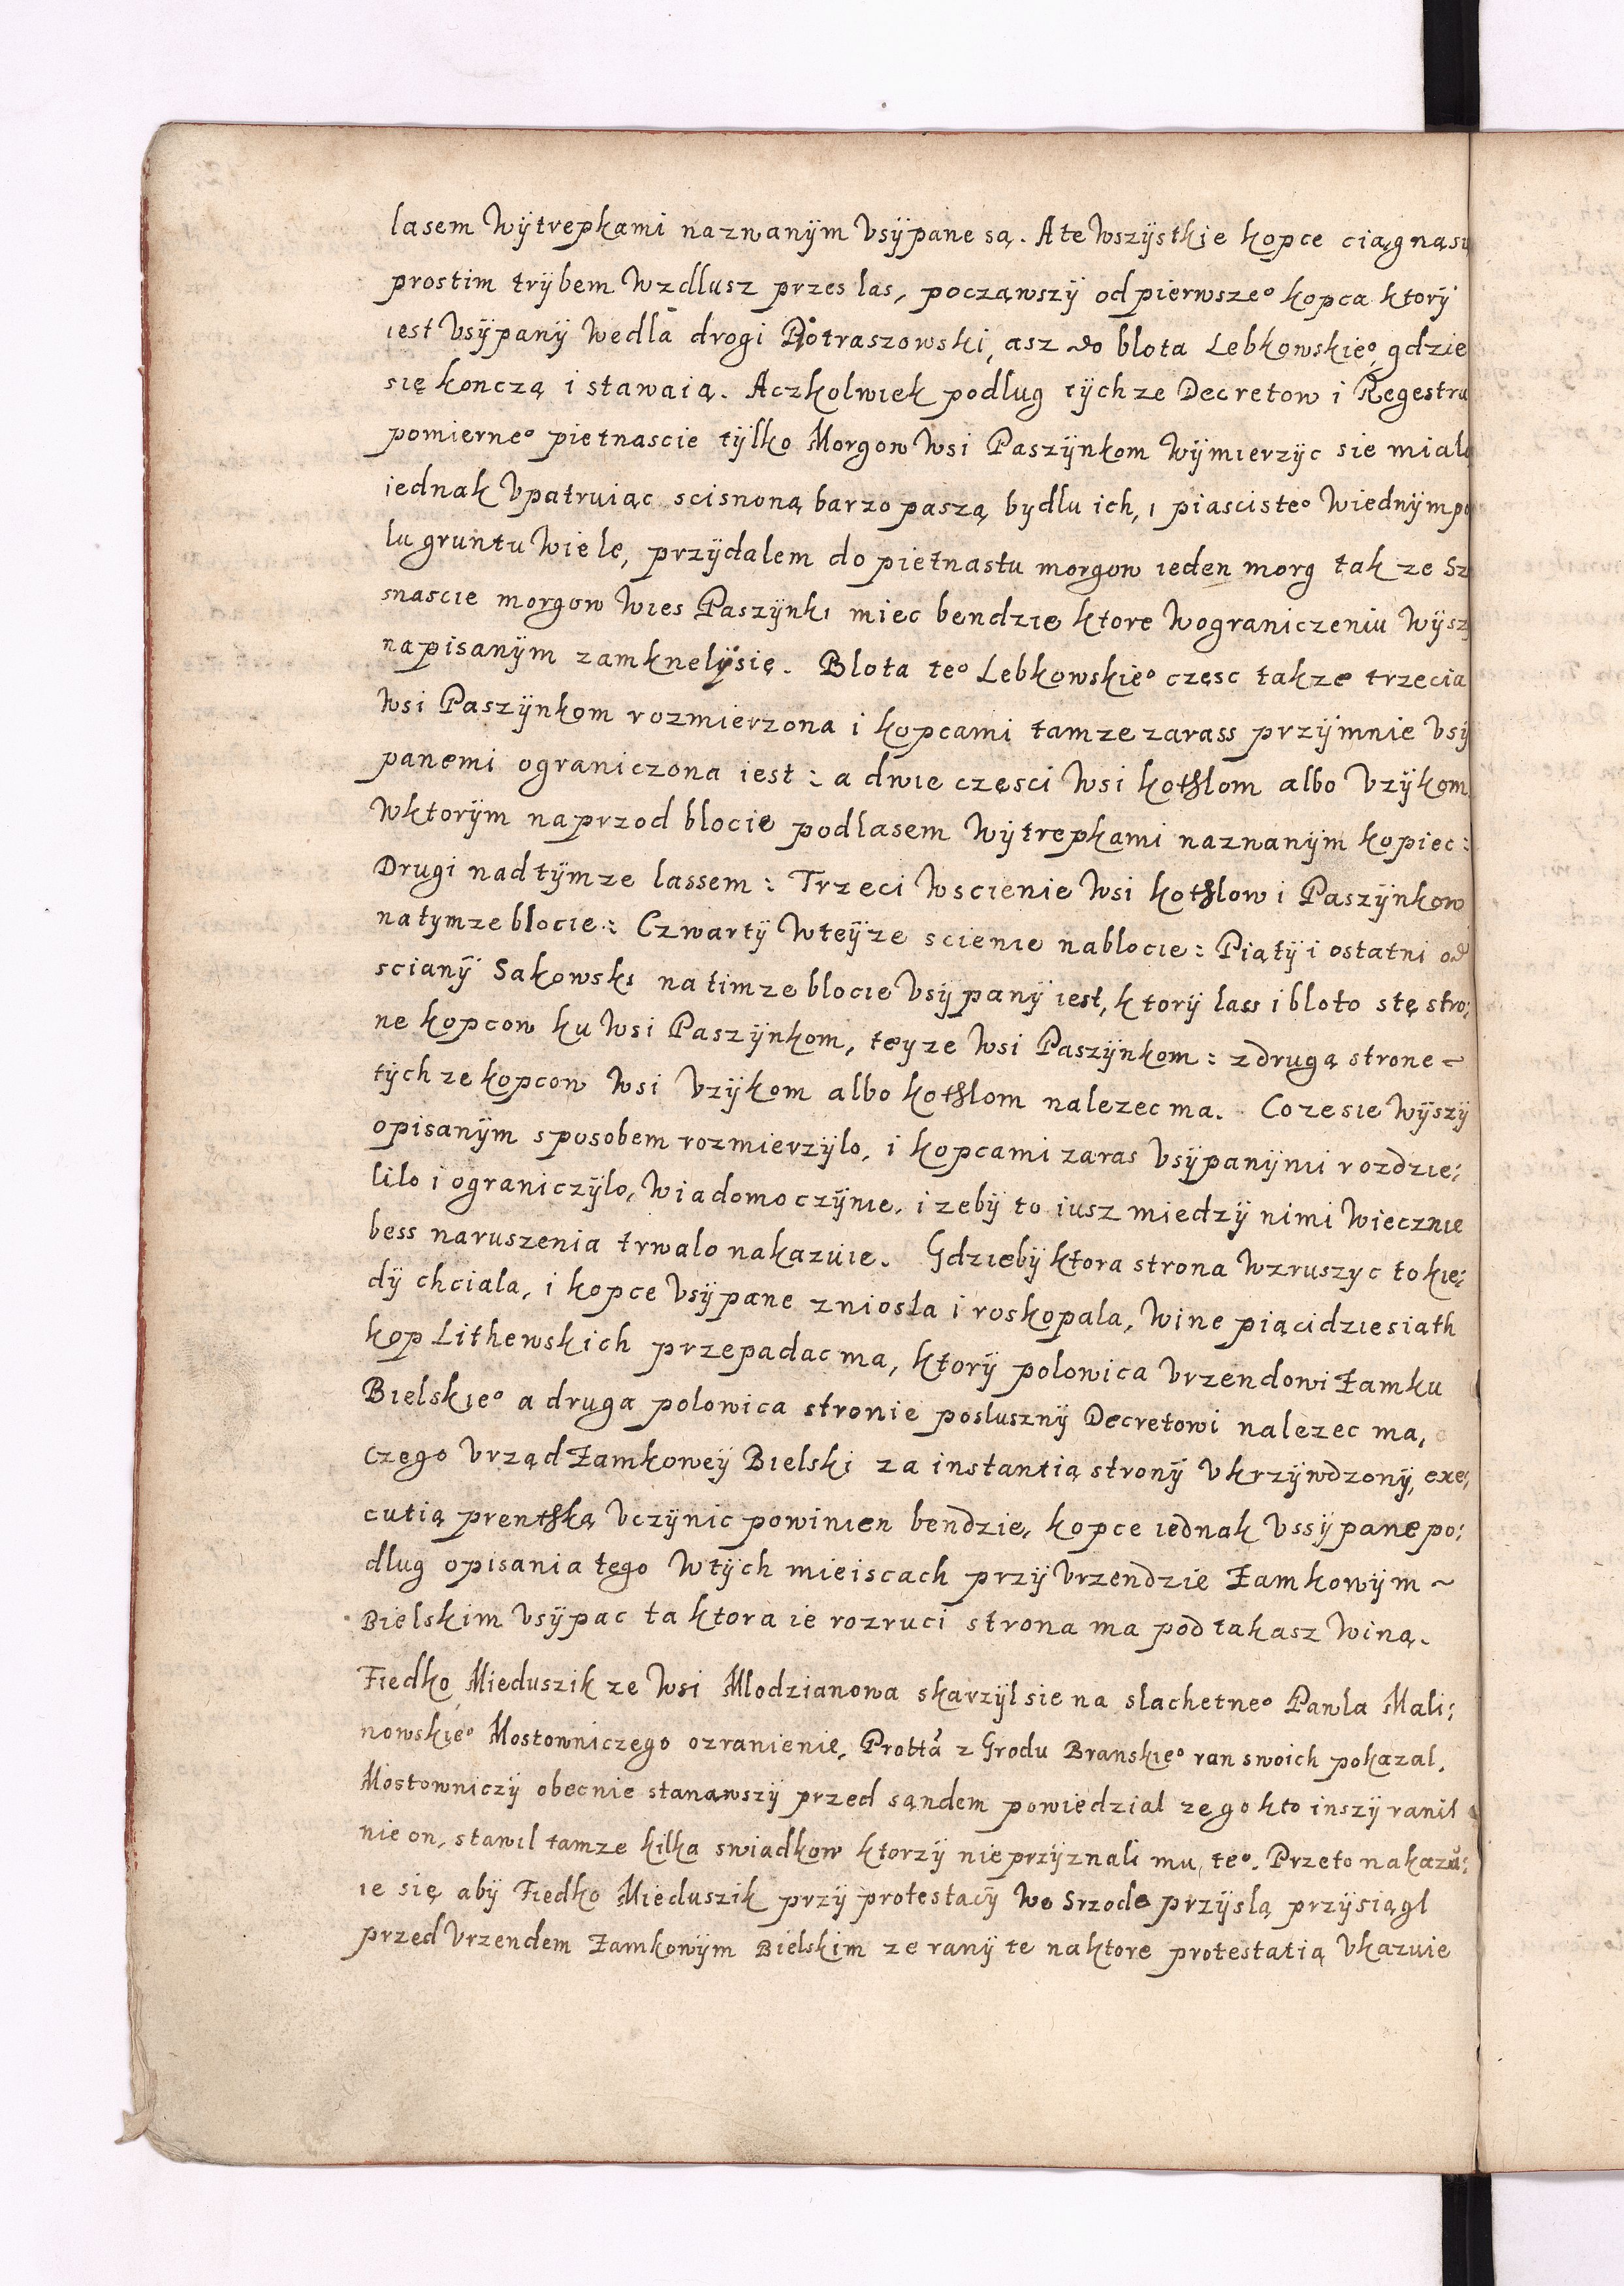 lasem Wÿtrepkami nazwanÿm Vsÿpane są. A te Wszÿstkie kopce ciągną
prostim trÿbem Wzdlusz przes las, począwszÿ od pierwszeº kopca ktorÿ
iest Vsÿpanÿ Wedla drogi Potraszowski, asz do blota Lebkowskieº, gdzie
się konczą i stawaią. Aczkolwiek podlug tÿchze Decretow i Regestru
pomierneº pietnascie tÿlko Morgow Wsi Paszÿnkom Wÿmierzÿc sie mialo
iednak Vpatruiąc scisnoną barzo paszą bydlu ich, i piascisteº Wiednÿm po
lu gruntu Wiele, przÿdalem do pietnastu morgow ieden morg tak ze Sz
snascie morgow Wies Paszÿnki miec bendzie ktore Wograniczeniu Wÿsz
napisanÿm zamknelÿ się. Blota teº Lebkowskieº częsc takze trzecia
Wsi Paszÿnkom rozmierzona i kopcami tamze zarass przÿmnie Vsÿ
panemi ograniczona iest: a dwie częsci Wsi kothlom albo Vzÿkom
Wktorÿm naprzod blocie podlasem Wÿtrepkami naznanÿm kopiec:
Drugi nad tÿmze lassem: Trzeci Wscienie Wsi kothlow i Paszÿnkow
na tymze blocie: Czwartÿ Wteÿze scienie na blocie: Piątÿ i ostatni od
scianÿ Sakowski na timze blocie Vsÿpanÿ iest, ktorÿ lass i bloto stę stro:
ne kopcow ku Wsi Paszÿnkom, teyze Wsi Paszÿnkom: z drugą strone ~
tÿchze kopcow Wsi Vzÿkom albo kothlom nalezec ma. Co ze sie Wÿszÿ
opisanÿm sposobem rozmierzÿlo, i kopcami zaras Vsÿpanÿmi rozdzie:
lilo i ograniczÿlo, Wiadomo czÿnie, i zebÿ to iusz miedzÿ nimi Wiecznie
bess naruszenia trwalo nakazuie. Gdziebÿ ktora strona Wzruszyc to kie:
dÿ chciala, i kopce Vsÿpane zniosla i roskopala, Wine piącidziesiath
kop Lithewskich przepadac ma, ktorÿ polowica Vrzendowi Zamku
Bielskieº a druga polowica stronie poslusznÿ Decretowi nalezec ma,
czego Vrząd Zamkoweÿ Bielski za instantią stronÿ Vkrzÿwdzonÿ, exe:
cutią prenthką Vczÿnic powinien bendzie, kopce iednak Vssÿpane po:
dlug opisania tego Wtÿch mieiscach przÿ Vrzendzie Zamkowÿm ~
Bielskim Vsÿpac ta ktora ie rozruci strona ma pod takasz Winą.
Fiedko Mieduszik ze Wsi Mlodzianowa skarzÿl sie na slachetneº Pawla Mali:
nowskieº Mostowniczego o zranienie, Protta z Grodu Branskieº ran swoich pokazal.
Mostowniczÿ obecnie stanąwszÿ przed sąndem powiedzial ze go kto inszÿ ranil
nie on, stawil tamze kilka swiadkow ktorzÿ nie przÿznali mu teº. Przeto nakazu:
ie się abÿ Fiedko Mieduszik przÿ protestacÿ We Srzode przÿslą przÿsiągl
przed Vrzendem Zamkowÿm Bielskim ze ranÿ te na ktore protestatią Vkazuie